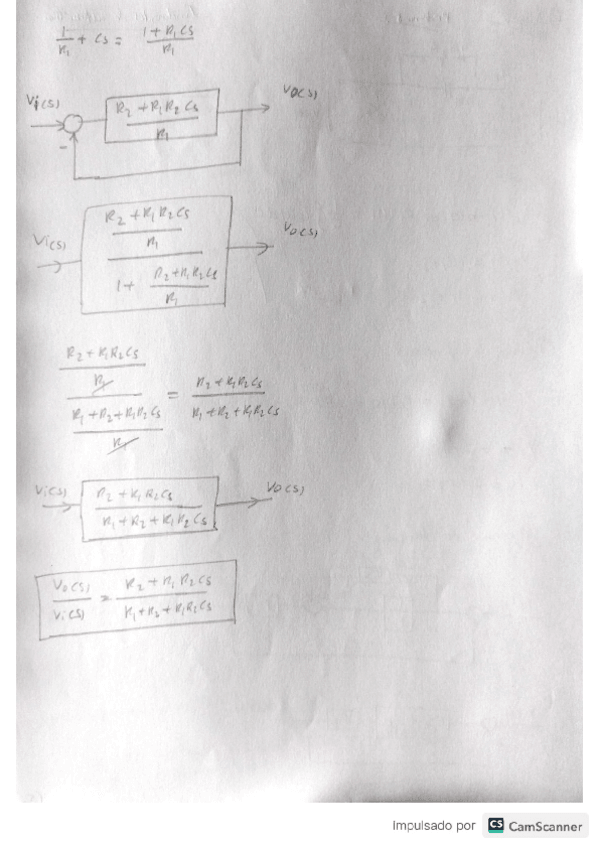 1/R1 + Cs = 1+R1Cs/R1
Vi(s) R2+R1R2Cs/R1 Vo(s)
-
Vi(s) R2+R1R2Cs/R1 / 1+ R2+R1R2Cs/R1 Vo(s)
R2+R1R2Cs/R1 / R1+R2+R1R2Cs/R1 = R2+R1R2Cs/R1+R2+R1R2Cs
Vi(s) R2+R1R2Cs/R1+R2+R1R2Cs Vo(s)
Vo(s)/Vi(s) = R2+R1R2Cs/R1+R2+R1R2Cs
Impulsado por CS CamScanner